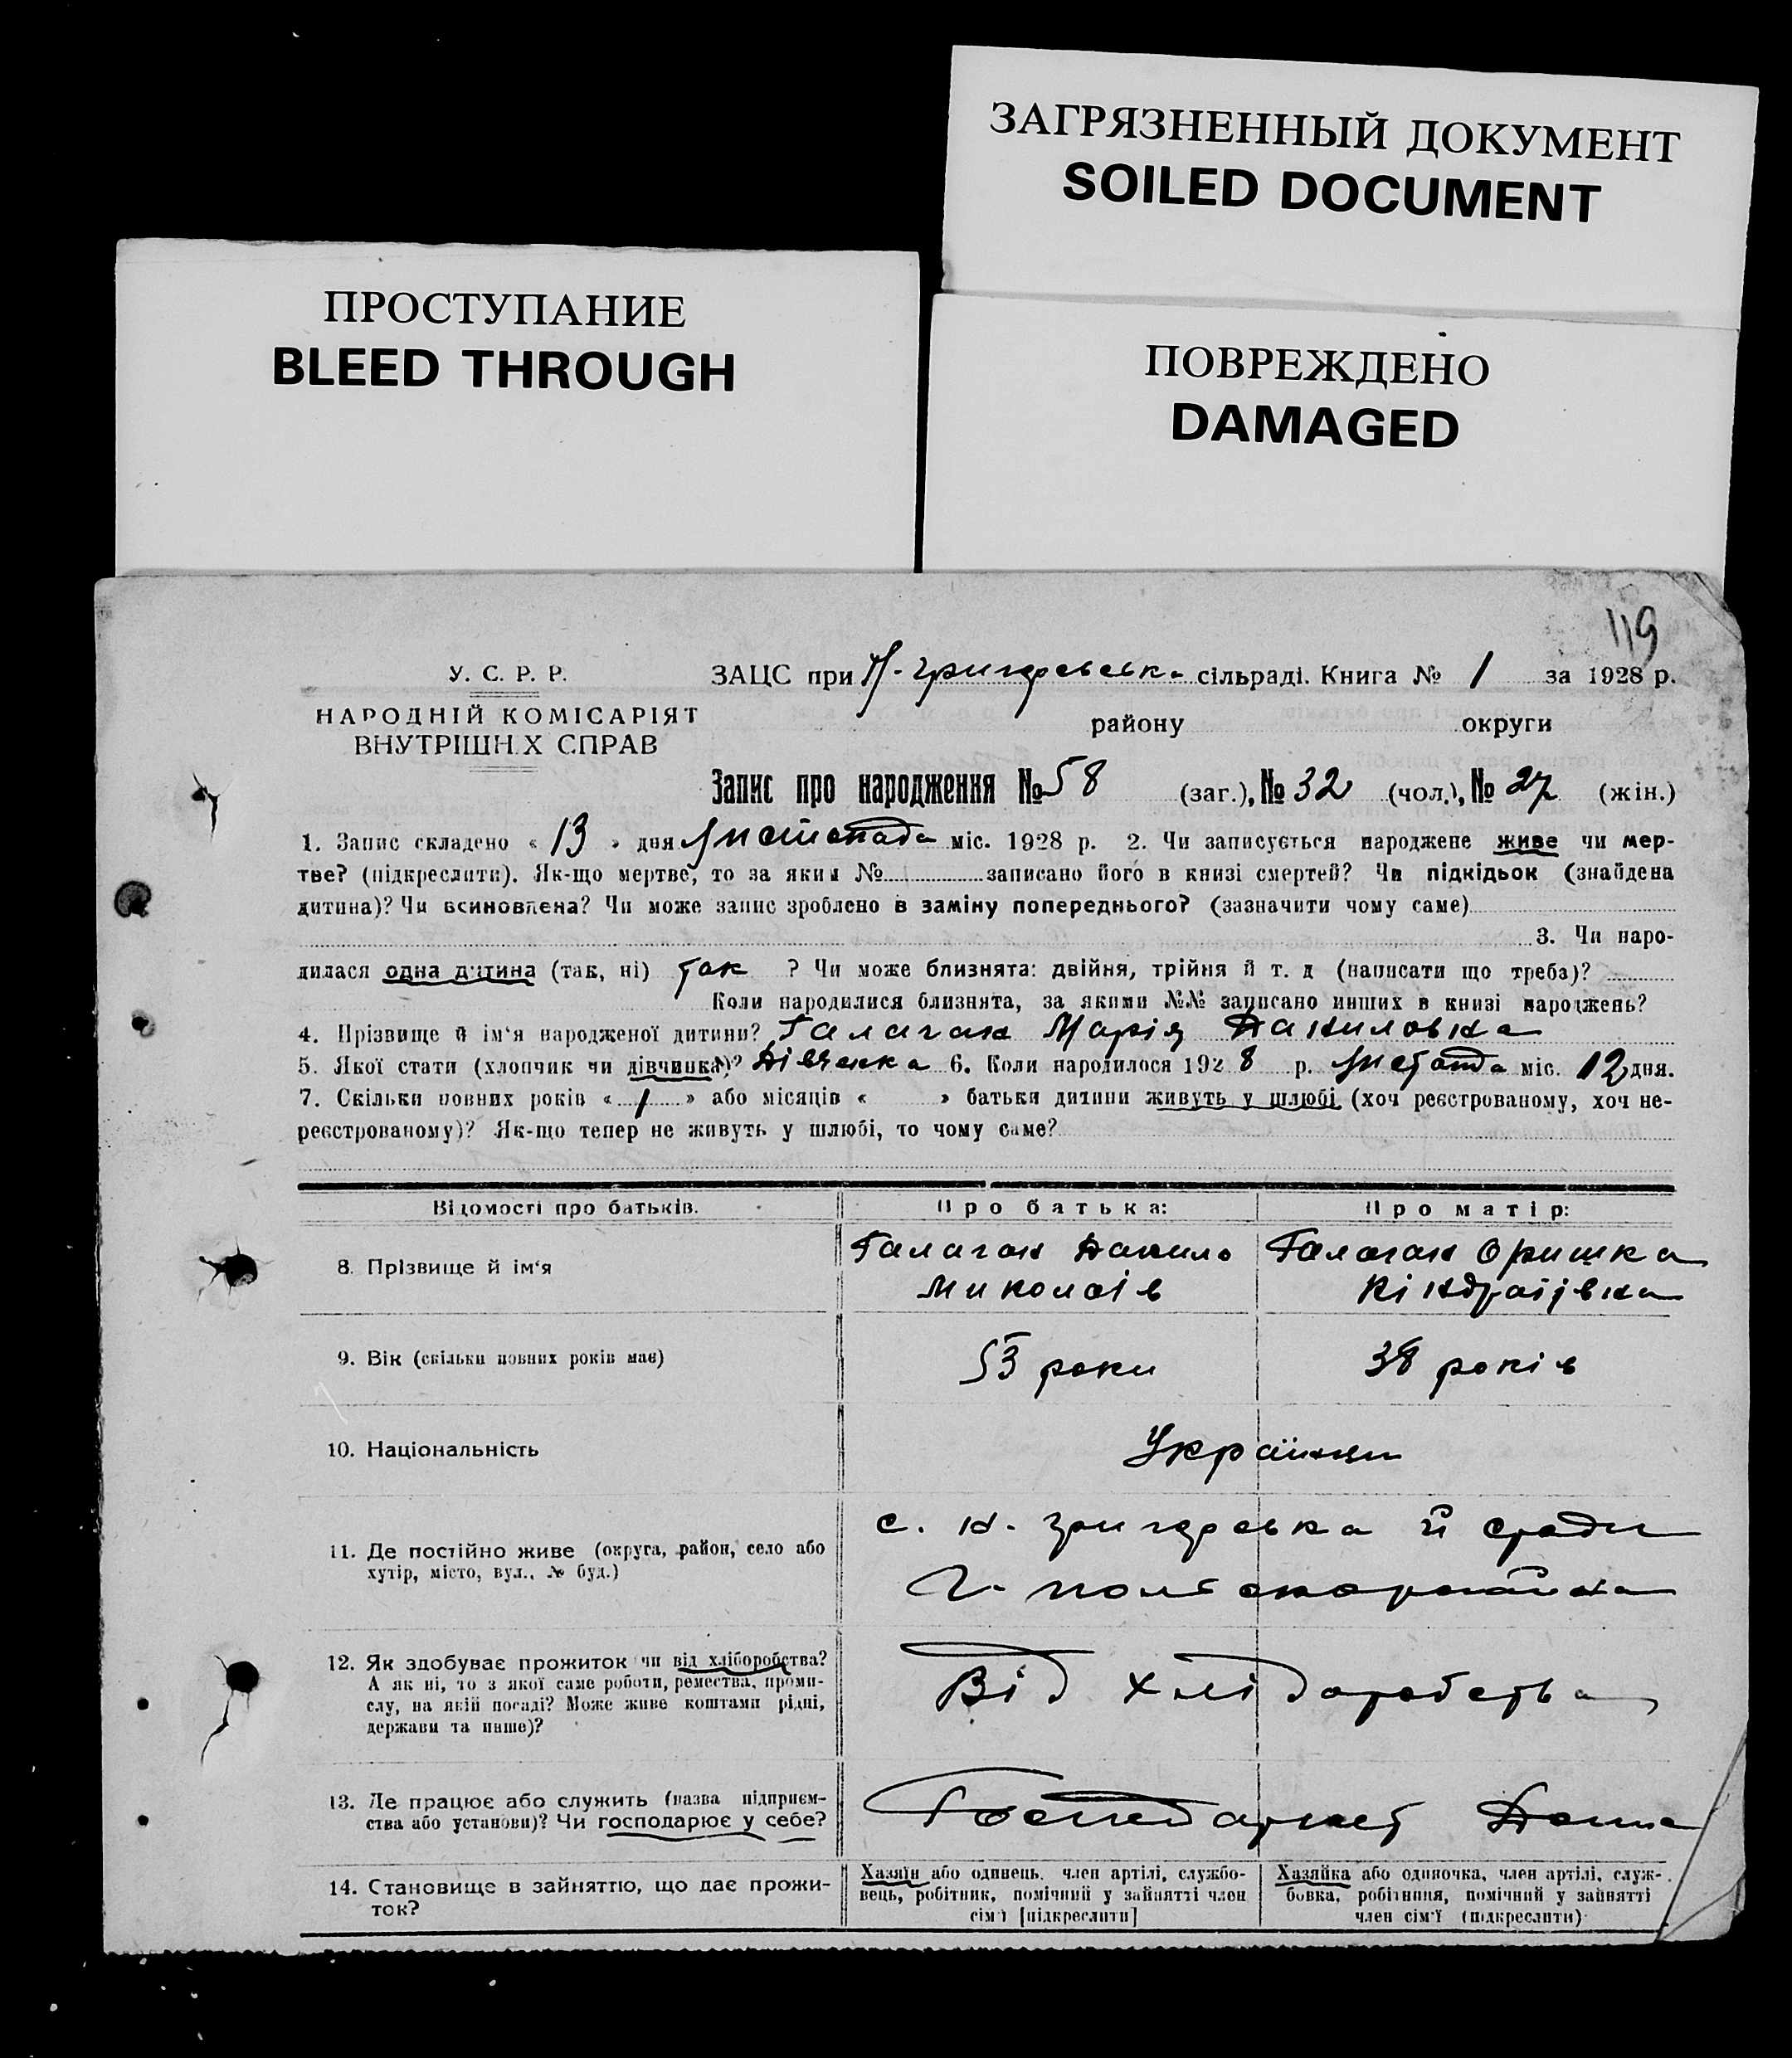 ЗАГРЯЗНЕННЫЙ ДОКУМЕНТ
SOILED DOCUMENT
ПРОСТУПАНИЕ
BLEED THROUGH
ПОВРЕЖДЕНО
DAMAGED
119
У. С. Р. Р.
НАРОДНІЙ КОМІСАРІЯТ
ВНУТРІШНІХ СПРАВ
ЗАЦС при сільраді. Книга № 1 за 1928 р.
району округи
Запис про народження № 58 (заг.), № 32 (чол.), № 27 (жін.)
1. Запис складено « 13 » дня листопада міс. 1928 р. 2. Чи записується народжене живе чи мер-
тве? (підкреслити). Як-що мертве, то за яким № записано його в книзі смертей? Чи підкідьок (знайдена
дитина)? Чи всиновлена? Чи може запис зроблено в заміну попереднього? (зазначити чому саме)
3. Чи наро-
дилася одна дитина (так, ні) так ? Чи може близнята: двійня, трійня й т. д (написати що треба)?
Коли народилися близнята, за якими №№ записано инших в книзі народжень?
4. Прізвище й ім'я народженої дитини? Галаган Марія Даниловна
5. Якої стати (хлопчик чи дівчинка)? Дівченка 6. Коли народилося 1928 р. міс. 12 дня.
7. Скільки повних років « 1 » або місяців « » батьки дитини живуть у шлюбі (хоч реєстрованому, хоч не-
реєстрованому)? Як-що тепер не живуть у шлюбі, то чому саме?
Відомості про батьків. Про батька: Про матір:
8. Прізвище й ім'я
Галаган Данило Галаган Оришка
Миколаів Кіндратівна
9. Вік (скільки повних років має) 53 роки 38 років
10. Національність Українци
11. Де постійно живе (округа, район, село або
хутір, місто, вул., № буд.)
с. й
12. Як здобуває прожиток чи від хліборобства?
А як ні, то з якої саме роботи, ремества, проми-
слу, на якій посаді? Може живе коштами рідні,
держави та инше)?
Від хліборобства
13. Де працює або служить (назва підприєм-
ства або установи)? Чи господарює у себе?
14. Становище в зайняттю, що дає прожи-
ток?
Хазяїн або одинець, член артілі, службо-
вець, робітник, помічний у зайнятті член
сім'ї [підкреслити]
Хазяйка або одиночка, член артілі, служ-
бовка, робітниця, помічний у зайнятті
член сім'ї (підкреслити)